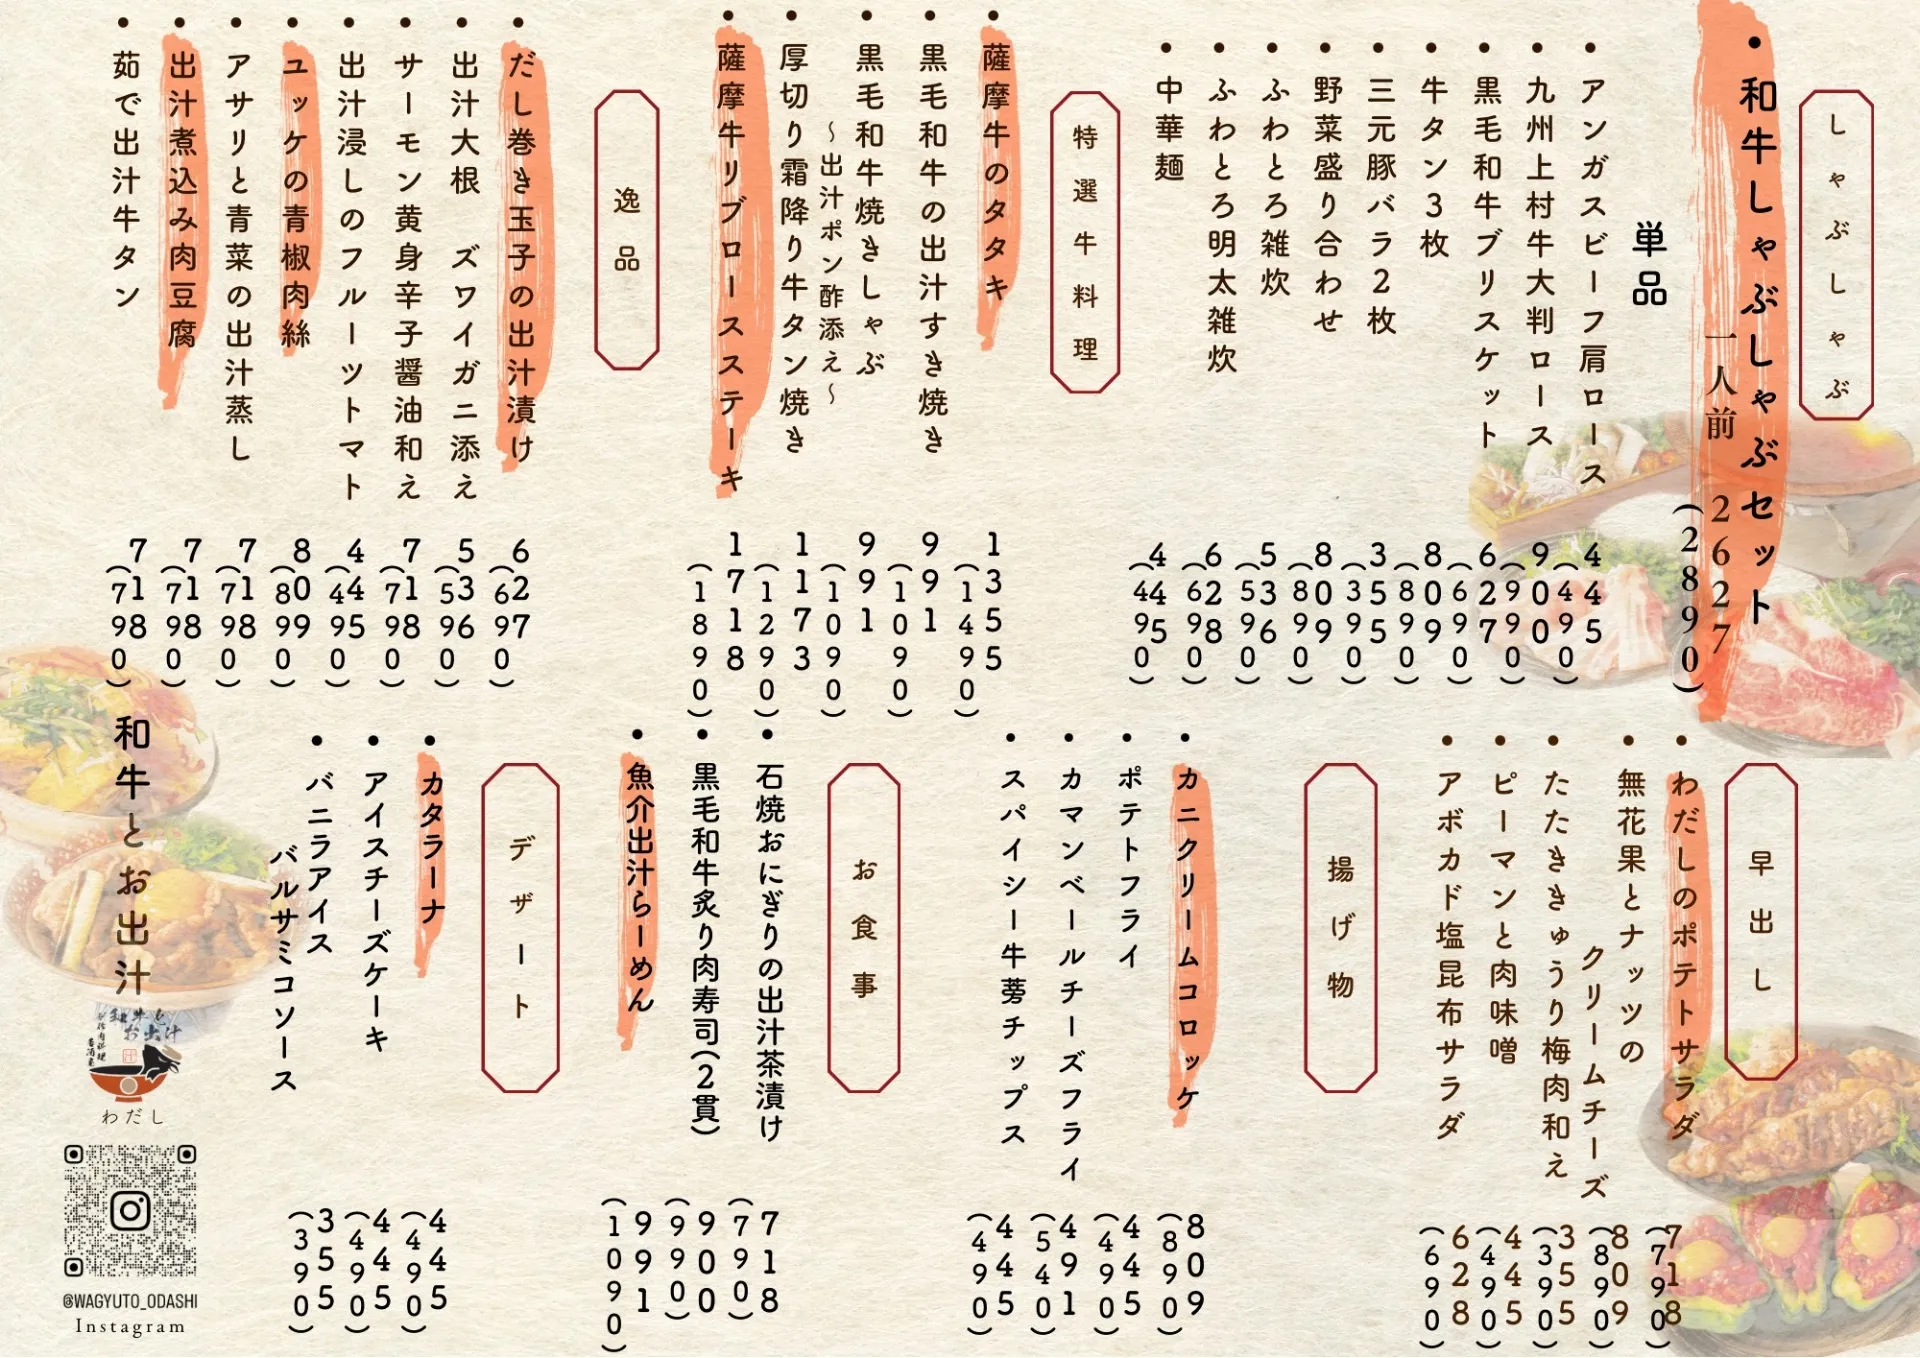 しゃぶしゃぶ
・和牛しゃぶしゃぶセット
一人前 2627
(2890)
単品
・アンガスビーフ肩ロース 445
(490)
・九州上村牛大判ロース 900
(990)
・黒毛和牛ブリスケット 627
(690)
・牛タン3枚 809
(890)
・三元豚バラ2枚 355
(390)
・野菜盛り合わせ 809
(890)
・ふわとろ雑炊 536
(590)
・ふわとろ明太雑炊 628
(690)
・中華麺 445
(490)
特選牛料理
・薩摩牛のタタキ 1355
(1490)
・黒毛和牛の出汁すき焼き 991
(1090)
・黒毛和牛焼きしゃぶ 991
〜出汁ポン酢添え〜
(1090)
・厚切り霜降り牛タン焼き 1173
(1290)
・薩摩牛リブロースステーキ 1718
(1890)
逸品
・だし巻き玉子の出汁漬け 627
(690)
・出汁大根 ズワイガニ添え 536
(590)
・サーモン黄身辛子醤油和え 718
(790)
・出汁浸しのフルーツトマト 445
(490)
・ユッケの青椒肉絲 809
(890)
・アサリと青菜の出汁蒸し 718
(790)
・出汁煮込み肉豆腐 718
(790)
・茹で出汁牛タン 718
(790)
早出し
・わだしのポテトサラダ 718
(790)
・無花果とナッツの
クリームチーズ 809
(890)
・たたききゅうり梅肉和え 355
(390)
・ピーマンと肉味噌 445
(490)
・アボカド塩昆布サラダ 628
(690)
揚げ物
・カニクリームコロッケ 809
(890)
・ポテトフライ 445
(490)
・カマンベールチーズフライ 491
(540)
・スパイシー牛蒡チップス 445
(490)
お食事
・石焼おにぎりの出汁茶漬け 718
(790)
・黒毛和牛炙り肉寿司(2貫) 900
(990)
・魚介出汁らーめん 991
(1090)
デザート
・カタラーナ 445
(490)
・アイスチーズケーキ 445
(490)
・バニラアイス
バルサミコソース 355
(390)
和牛とお出汁
和牛と
お出汁
わだし
@WAGYUTO_ODASHI
Instagram